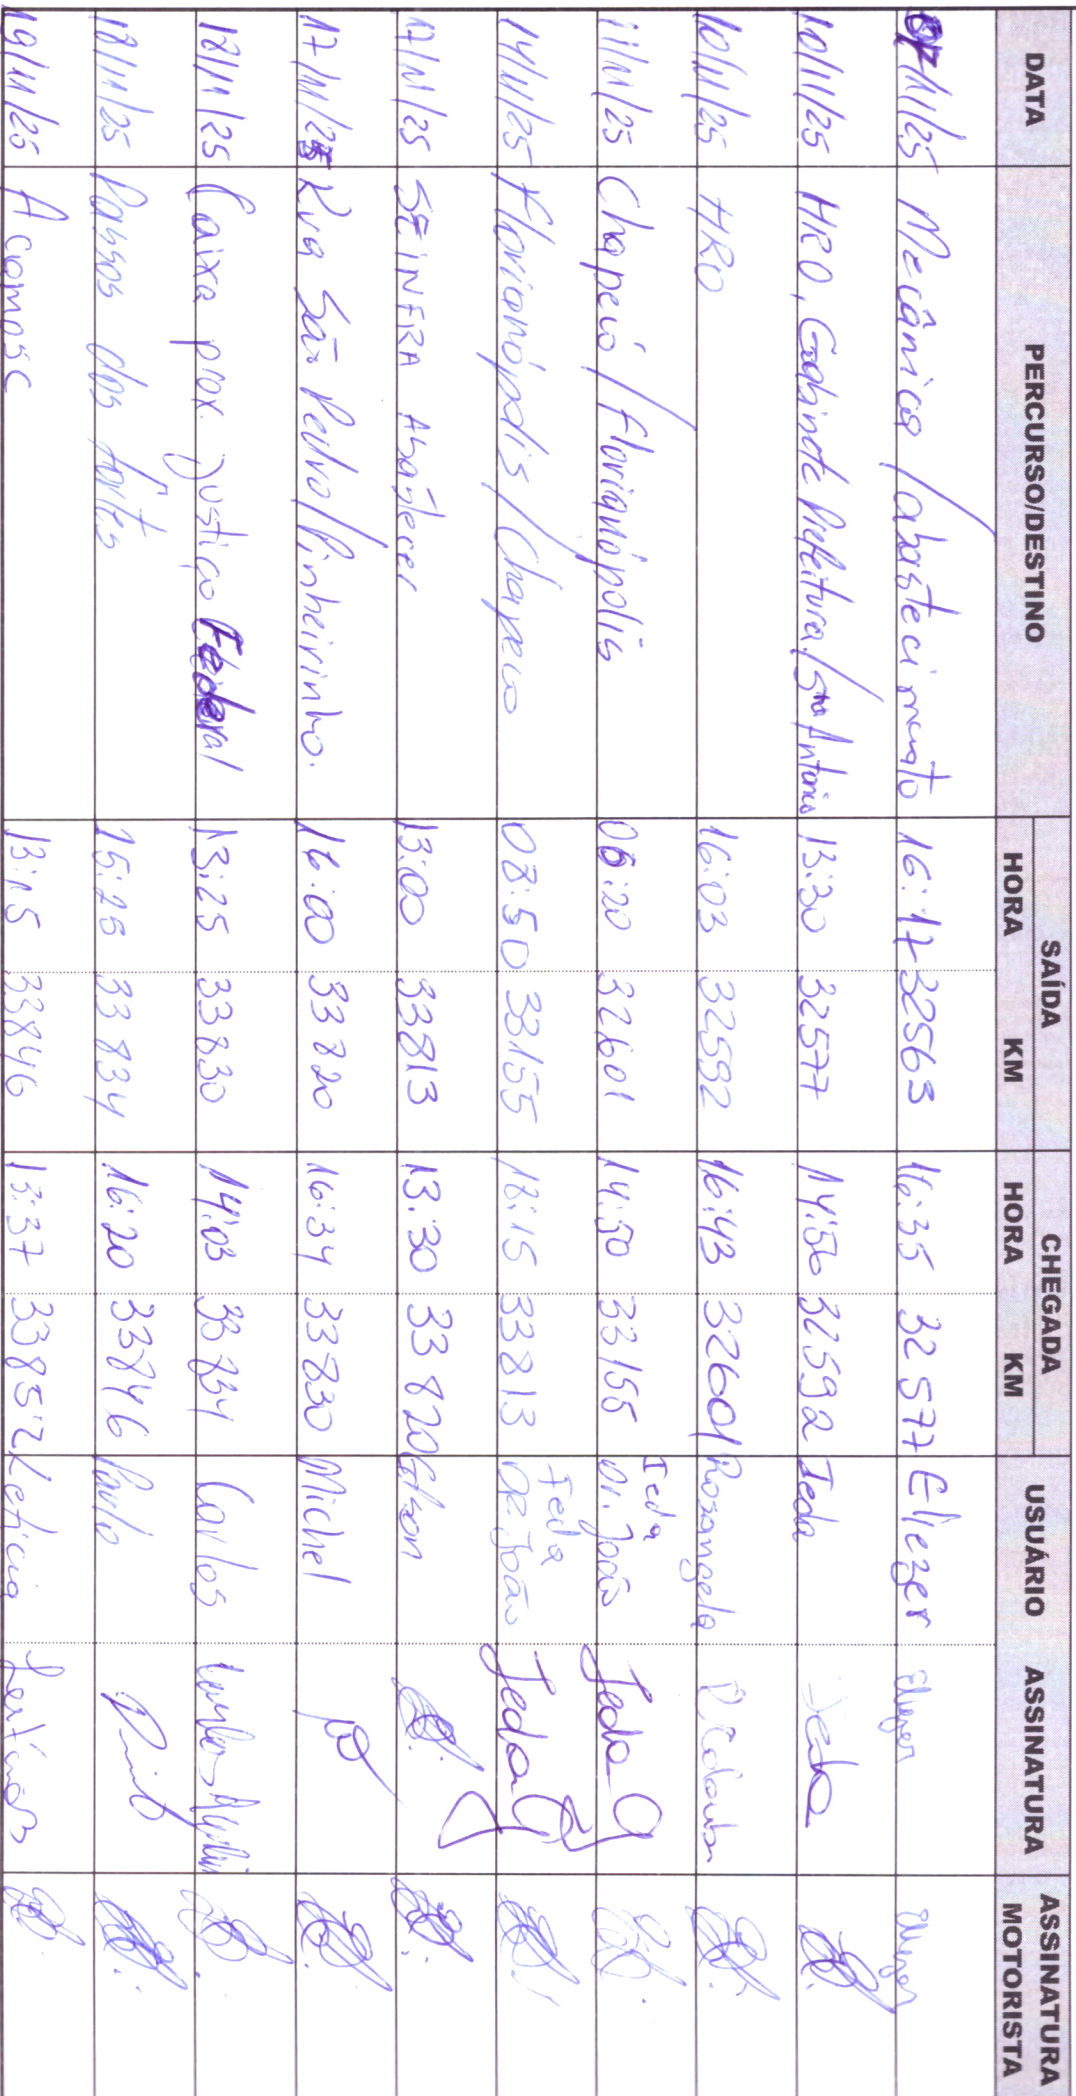 DATA PERCURSO/DESTINO SAÍDA CHEGADA USUÁRIO ASSINATURA ASSINATURA MOTORISTA
HORA KM HORA KM
07/11/25 Mecânica / abastecimento 16:17 32563 16:35 32577 Eliezer Eliezer Eliezer
10/11/25 HRO, Gabinete Prefeitura / Sto Antonio 13:30 32577 14:56 32592 Ieda Ieda
10/11/25 HRO 16:03 32592 16:43 32601 Rosangela
11/11/25 Chapecó / Florianópolis 06:20 32601 14:50 33155 Ieda Dr. João Ieda
14/11/25 Florianópolis / Chapecó 08:50 33155 18:15 33813 Ieda DR João Ieda
17/11/25 SEINFRA Abastecer 13:00 33813 13:30 33820 Gilson
17/11/25 Rua São Pedro / Pinheirinho. 16:00 33820 16:34 33830 Michel
18/11/25 Caixa prox. Justiça Federal 13:25 33830 14:03 33834 Carlos
18/11/25 Passos dos fortes 15:26 33834 16:20 33846 Paulo
19/11/25 Acamosc 13:15 33846 13:37 33852 Leticia